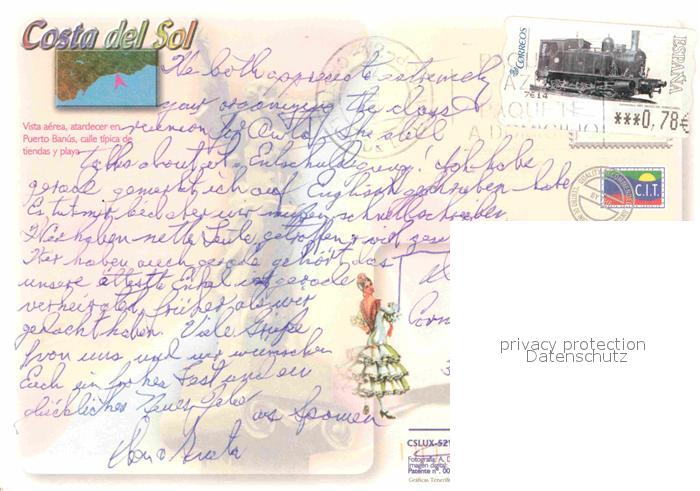 Costa del Sol
We both appreciate extremely
your organizing the class
reunion for Anita. She still
talks about it. Entschuldigung! Ich habe
gerade gemerkt ich auf Englisch geschrieben habe
Es tut mir leid aber wir müssen schnell schreiben
Wir haben nette Leute getroffen + viel
Wir haben auch gerade gehört das
unsere älteste Enkel ist gerade
verheiratet, früher als wir
gedacht haben. Viele Grüße
von uns und wir wuenschen
Euch ein frohes Fest und ein
glückliches Neues Jahr
aus Spanien
Vista aérea, atardecer en
Puerto Banús, calle típica de
tiendas y playa
CORREOS
ESPAÑA
7E14
***0,78€
PAQUETE
A DOMICILIO
C.I.T.
privacy protection
Datenschutz
CSLUX-521
Fotografía: A. D
Imagen digital
Patente n°. 00
Gráficas Tenerife